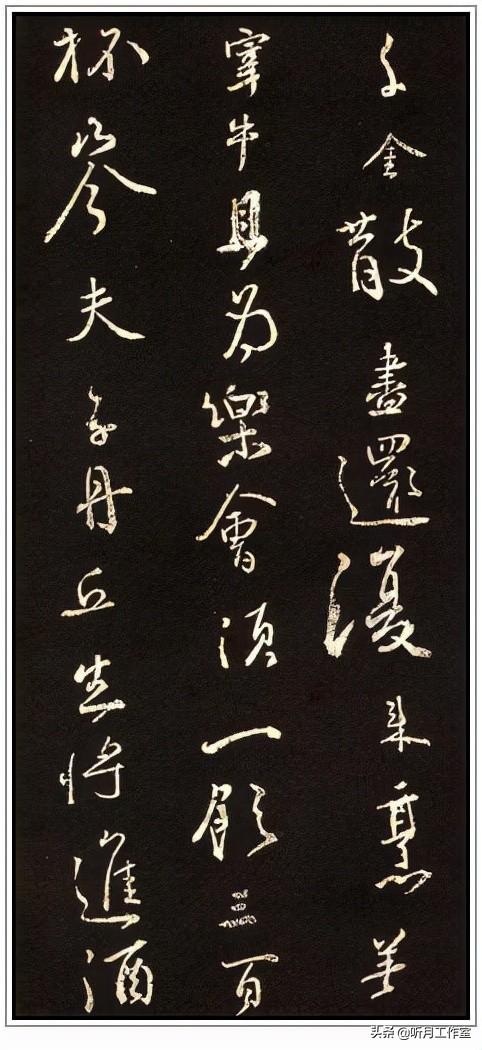 千金散盡還復來烹羊
宰牛且為樂會須一飲三百
杯岑夫子丹丘生將進酒
头条 @听月工作室